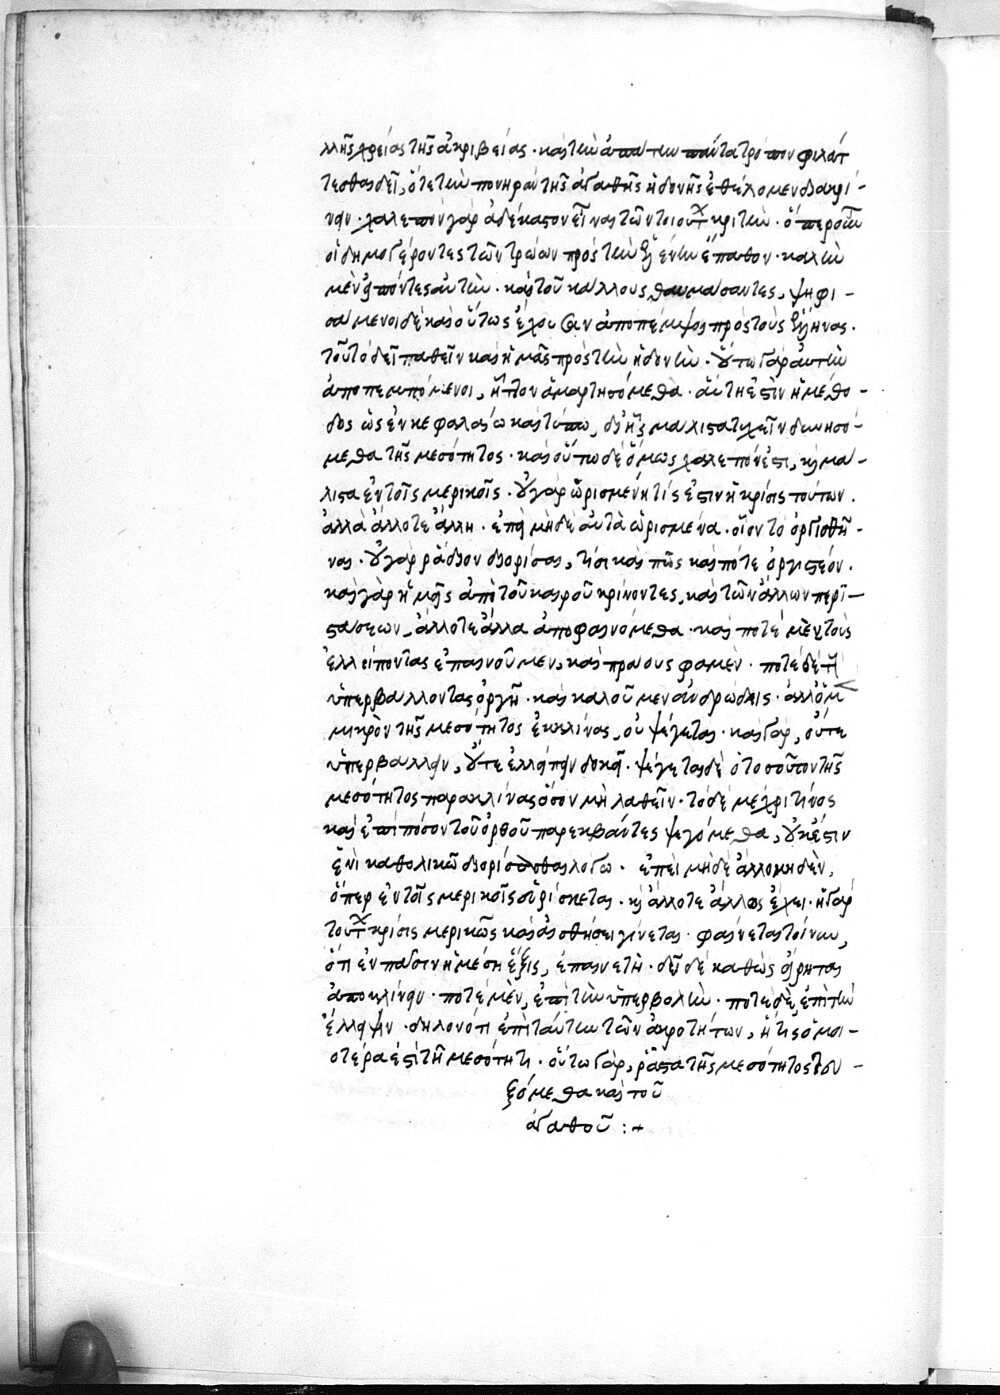 λλῆς χρείας τῆς ἀκριβείας · καὶ τὴν ἀπάτην πάντα τρόπον φυλάτ
τεσθαι δεῖ, ὅτε τὴν πονηρὰν τῆς ἀγαθῆς ἡδονῆς ἐθέλομεν διακρί –
νειν · χαλεπὸν γὰρ ἀδέκαστον εἶναι τῶν τοιούτων κριτὴν · ὅπερ οὖν
οἱ δημογέροντες τῶν τρώων πρὸς τὴν ἑλένην ἔπαθον · καλὴν
μὲν εἰπόντες αὐτὴν · καὶ τοῦ κάλλους θαυμάσαντες, ψηφι –
σάμενοι δὲ καὶ οὕτως ἔχουσαν ἀποπέμψαι πρὸς τοὺς ἕλληνας ·
τοῦτο δεῖ παθεῖν καὶ ἡμᾶς πρὸς τὴν ἡδονήν · οὕτω γὰρ αὐτὴν
ἀποπεμπόμενοι, ἧττον ἁμαρτησόμεθα · αὕτη ἐστὶν ἡ μέθο –
δος ὡς ἐν κεφαλαίω καὶ τύπω, δι' ἧς μάλιστα τυχεῖν δυνησό –
μεθα τῆς μεσότητος · καὶ οὕπω δὲ ὅμως χαλεπόν ἐστι, καὶ μά –
λιστα ἐν τοῖς μερικοῖς · οὐ γὰρ ὡρισμένη τίς ἐστιν ἡ κρίσις τούτων ·
ἀλλὰ ἄλλοτε ἄλλη · ἐπεὶ μηδὲ αὐτὰ ὡρισμένα · οἷον τὸ ὀργισθῆ –
ναι · οὐ γὰρ ῥάδιον διορίσαι, τίσι καὶ πῶς καὶ πότε ὀργιστέον ·
καὶ γὰρ ἡμεῖς ἀπὸ τοῦ καιροῦ κρίνοντες, καὶ τῶν ἄλλων περι –
στάσεων, ἄλλοτε ἄλλα ἀποφαινόμεθα · καὶ ποτὲ μὲν τοὺς
ἐλλείποντας ἐπαινοῦμεν, καὶ πράους φαμέν · ποτὲ δὲ τοὺς
ὑπερβάλλοντας ὀργῆ · καὶ καλοῦμεν ἀνδρώδεις · ἀλλ' ὁ μ
μικρὸν τῆς μεσότητος ἐκκλίνας, οὐ ψέγεται · καὶ γὰρ, οὔτε
ὑπερβάλλειν, οὔτε ἐλλείπειν δοκεῖ · ψέγεται δὲ ὁ τοσοῦτον τῆς
μεσότητος παρακλίνας ὅσον μὴ λαθεῖν · τὸ δὲ μέχρι τίνος
καὶ ἐπὶ πόσον τοῦ ὀρθοῦ παρεκβάντες ψεγόμεθα, οὐκ ἔστιν
ἑνὶ καθολικῶ διορίσασθαι λόγω · ἐπεὶ μηδὲ ἄλλο μηδὲν,
ὅπερ ἐν τοῖς μερικοῖς εὑρίσκεται · καὶ ἄλλοτε ἄλλως ἔχει · ἡ γὰρ
τούτων κρίσις μερικῶς καὶ αἰσθήσει γίνεται · φαίνεται τοίνυν,
ὅτι ἐν πᾶσιν ἡ μέση ἕξις, ἐπαινετή · δεῖ δὲ καθὼς εἴρηται
ἀποκλίνειν · ποτὲ μὲν, ἐπὶ τὴν ὑπερβολὴν · ποτὲ δὲ, ἐπὶ τὴν
ἔλλειψιν · δηλονότι ἐπὶ ταύτην τῶν ἀκροτήτων, ἥτις ὁμοι –
οτέρα ἐστὶ τῆ μεσότητι · οὕτω γὰρ, ῥᾶστα τῆς μεσότητος τευ –
ξόμεθα καὶ τοῦ
ἀγαθοῦ : +